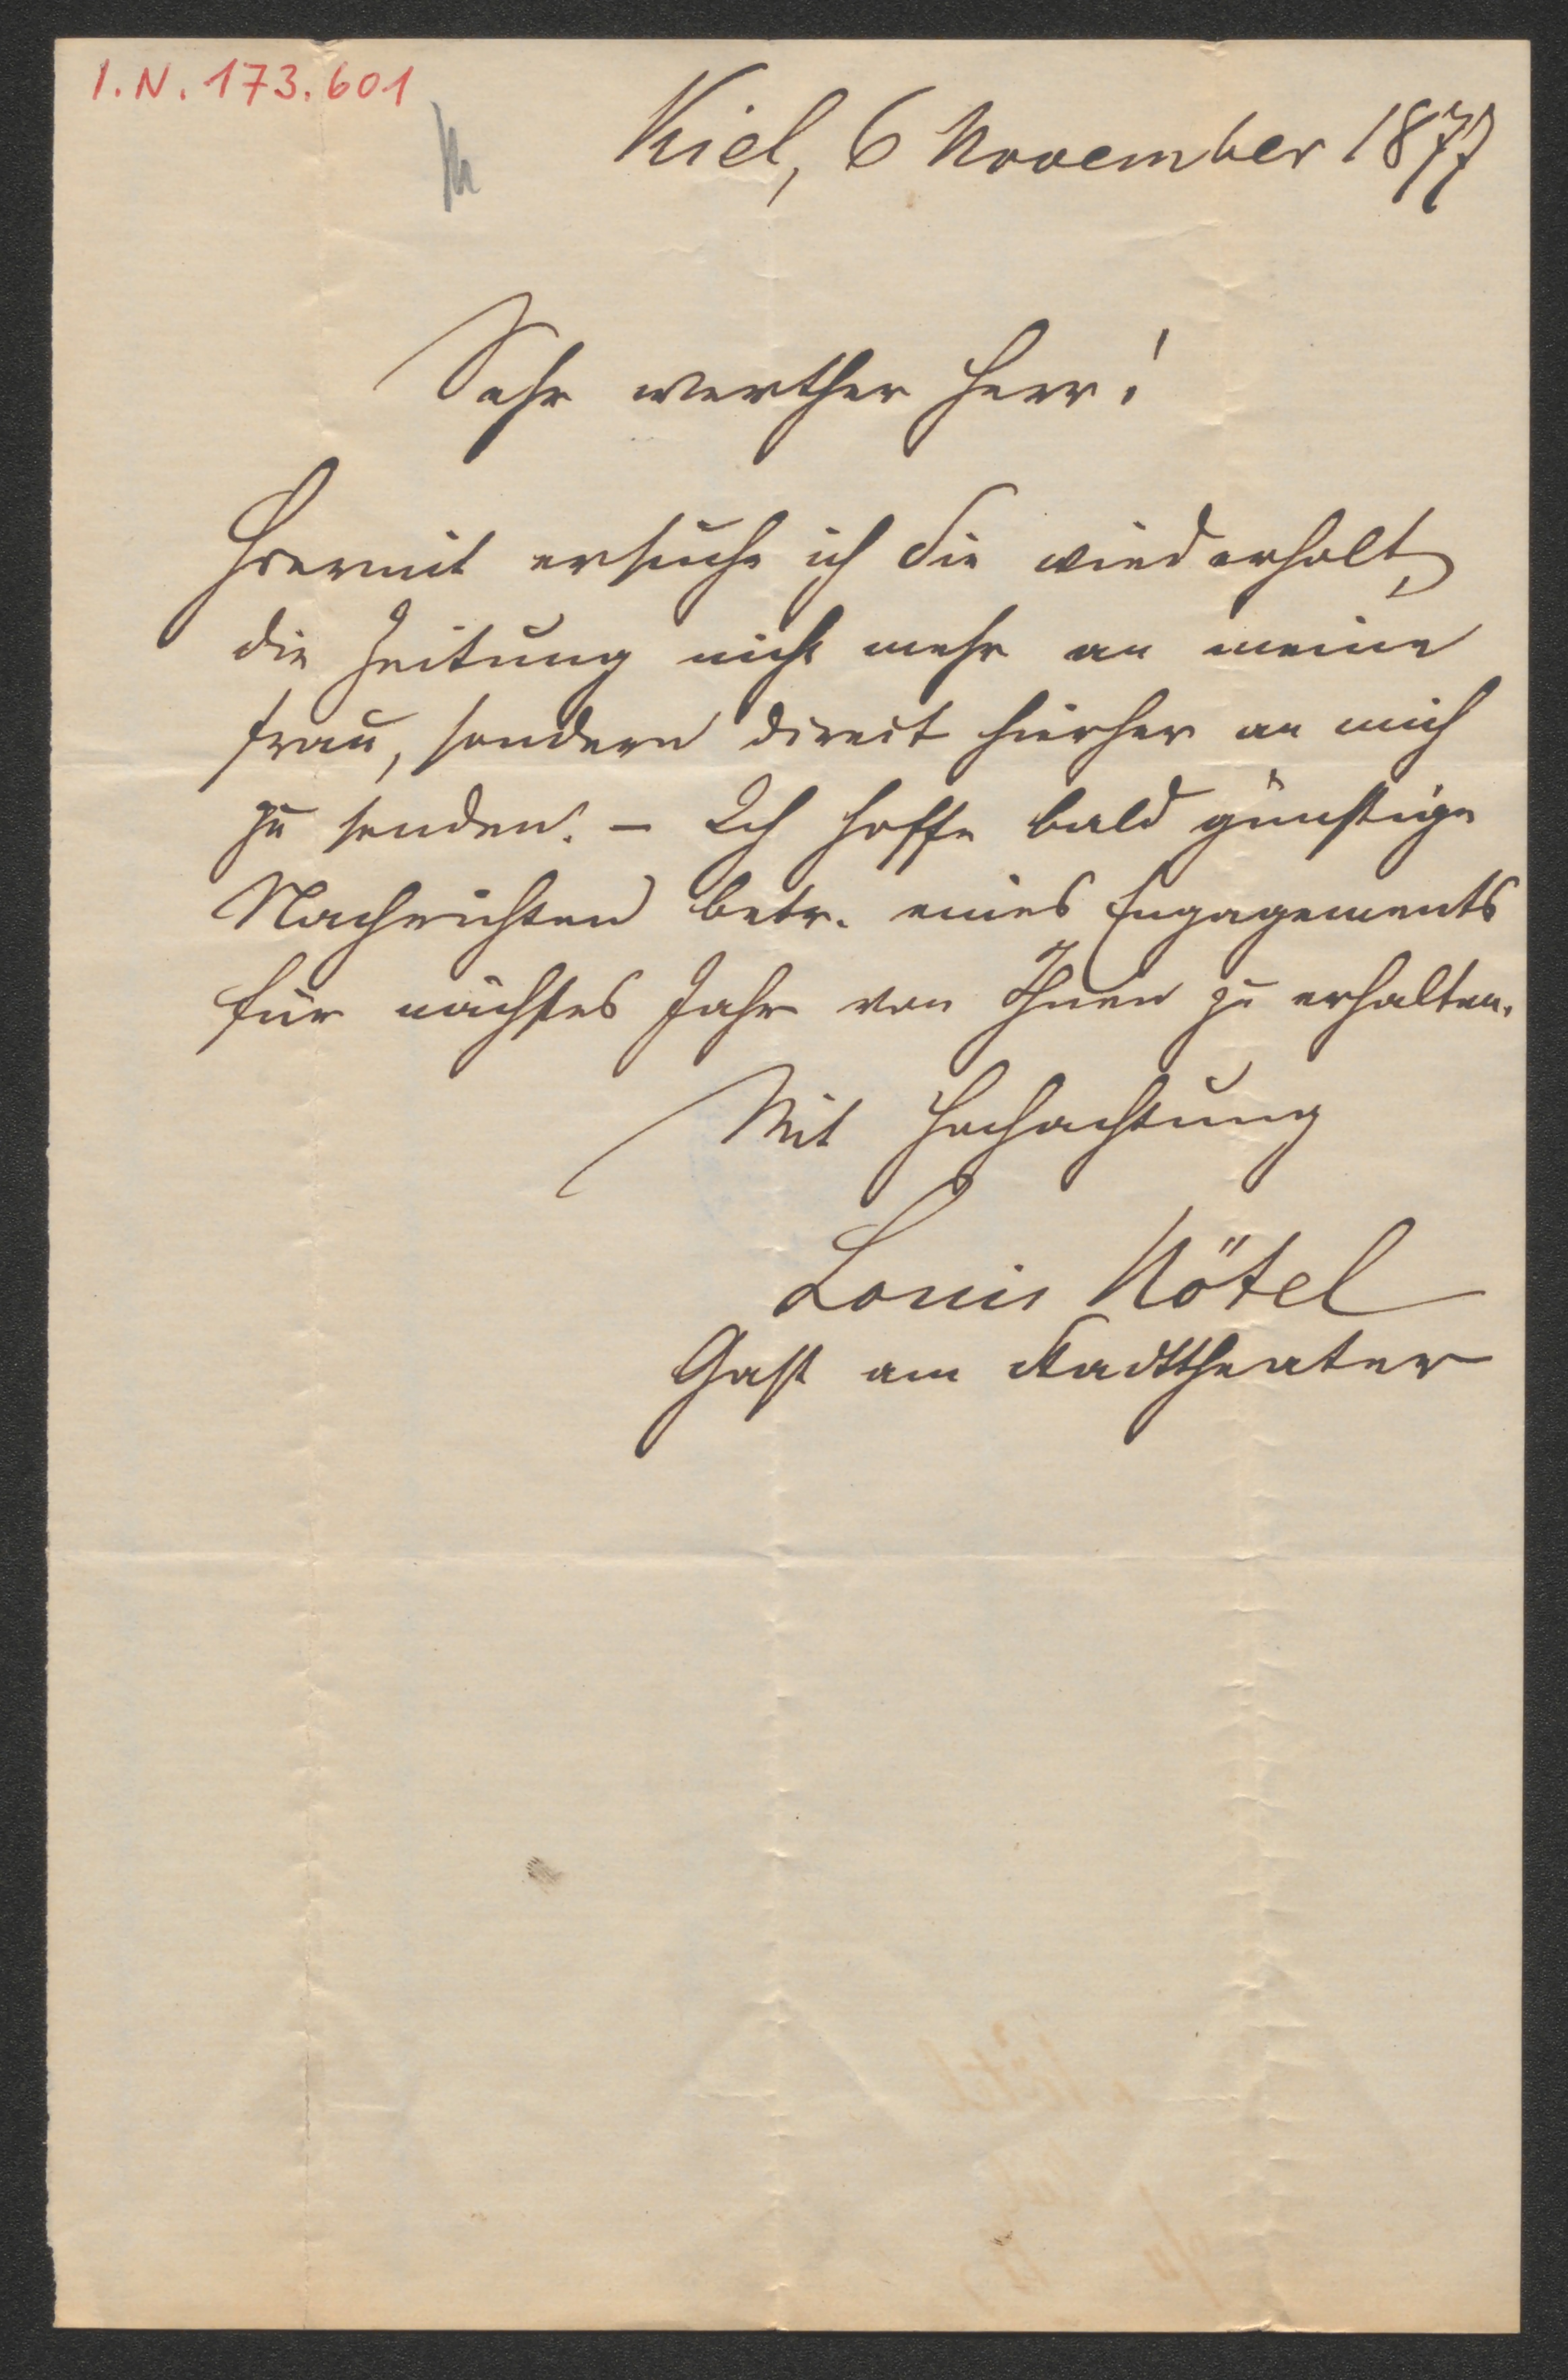 I.N. 173.601
Kiel, 6 November 1877
Sehr werther Herr!
Hiermit ersuche ich Sie wiederholt,
die Zeitung nicht mehr an meine
Frau, sondern direct hierher an mich
zu senden. – Ich hoffe bald günstige
Nachrichten betr. eines Engagements
für nächstes Jahr von Ihnen zu erhalten.
Mit Hochachtung
Louis Nötel
Gast am Stadttheater